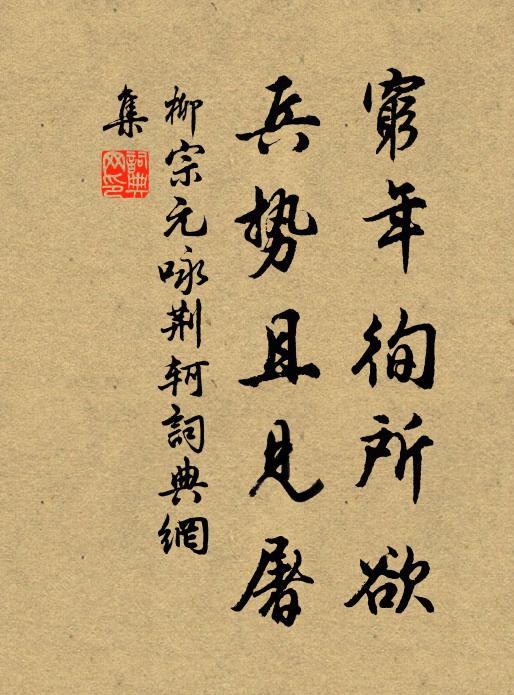 窮年徇所欲
兵势且見屠
柳宗元咏荆轲詞典網
集
詞典网印